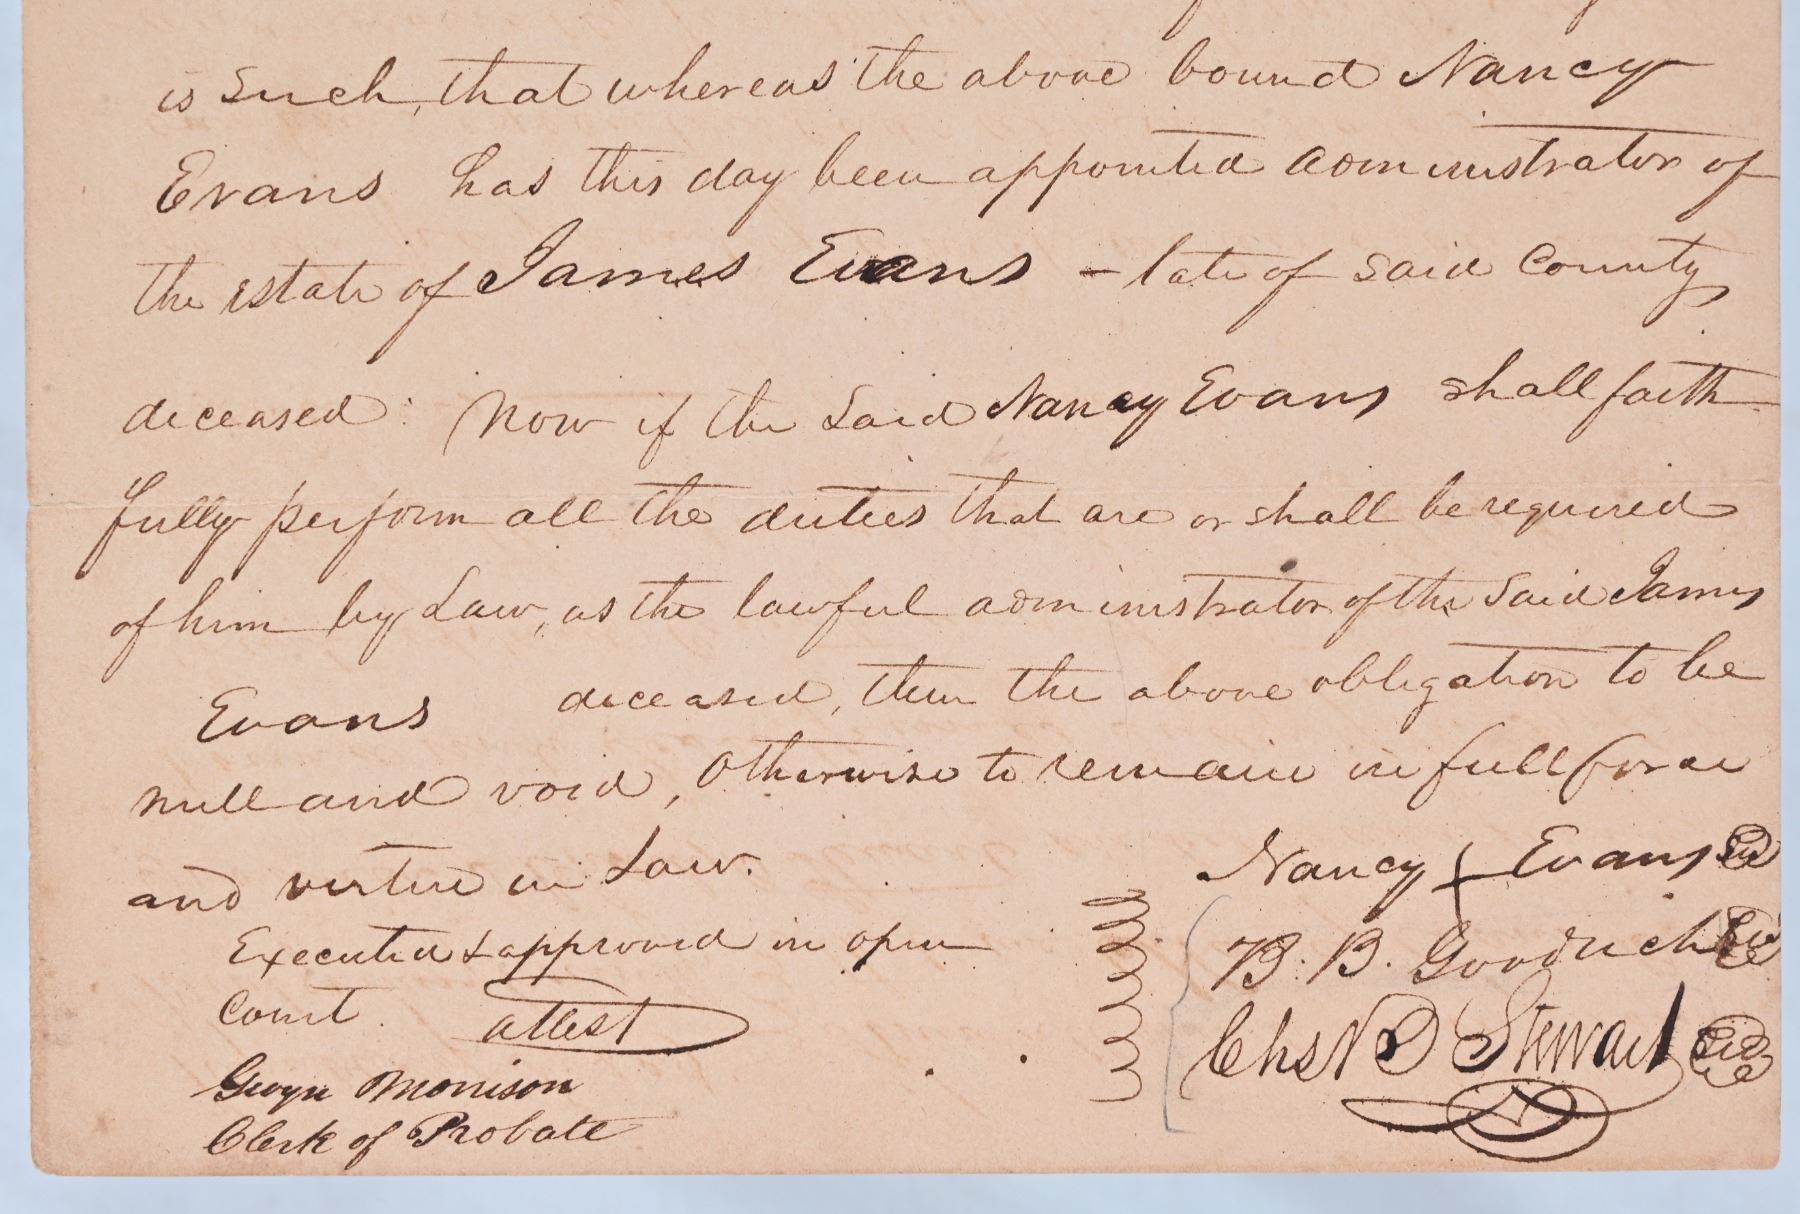 is Such, that whereas the above bound Nancy
Evans has this day been appointed administrator of
the estate of James Evans - late of said County
deceased: Now if the Said Nancy Evans shall faith
fully perform all the duties that are or shall be required
of him by Law, as the lawful administrator of the Said James
Evans deceased, then the above obligation to be
null and void, Otherwise to remain in full force
and virtue in Law.
Nancy + Evans
Executed & approved in open
B. B. Goodrich
Court. attest
Chs N D Stewart
Gwyn Morrison
Clerk of Probate